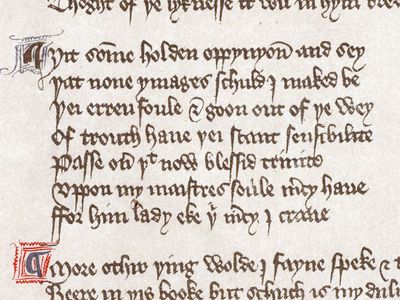 Thoght of ye lyknesse it wil in hym
Yit som̄e holden oppynyon̄ and sey
yat none ymages schuld I maked be
yei erren foule & goon out of ye wey
Of trouth haue yei skant sensibilite
Passe ou̾ yͭ now blessid trinite
Vppon my maistres soule m̾cy haue
ffor him lady eke yͥ m̾cy I craue
More othir ying wolde I fayne speke &
Heere in yis booke but schuch is my dul